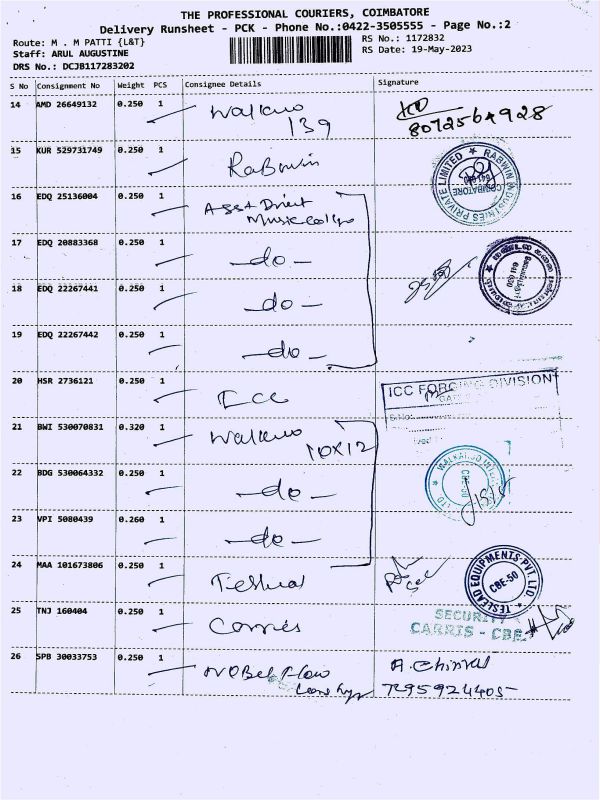 THE PROFESSIONAL COURIERS, COIMBATORE
Delivery Runsheet - PCK - Phone No.:0422-3505555 - Page No.:2
Route: M . M PATTI {L&T}
RS No.: 1172832
Staff: ARUL AUGUSTINE
RS Date: 19-May-2023
DRS No.: DCJB117283202
S No Consignment No Weight PCS Consignee Details Signature
14 AMD 26649132 0.250 1
139
15 KUR 529731749 0.250 1
Rabwin
RABWIN INDUSTRIES PRIVATE LIMITED
COIMBATORE
16 EDQ 25136004 0.250 1
Asst Direct
Music college
17 EDQ 20883368 0.250 1
- do -
18 EDQ 22267441 0.250 1
- do -
19 EDQ 22267442 0.250 1
- do -
20 HSR 2736121 0.250 1
ICC
ICC FORGING DIVISION
21 BWI 530070831 0.320 1
22 BDG 530064332 0.250 1
- do -
CBE-50
23 VPI 5080439 0.260 1
- do -
24 MAA 101673806 0.250 1
TESLEAD EQUIPMENTS PVT. LTD.
CBE-50
25 TNJ 160404 0.250 1
SECURITY
CARRIS - CBE
26 SPB 30033753 0.250 1
Nobel Flow
A. Chinral
7695924405